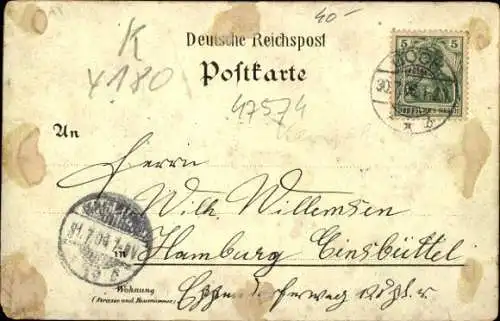 40-
K
4180
Deutsche Reichspost
Postkarte
47574
5 5
An
Herrn
Wilh. Willemsen
in Hamburg Einsbüttel
Wohnung
(Strasse und Hausnummer)
Eppendorferweg